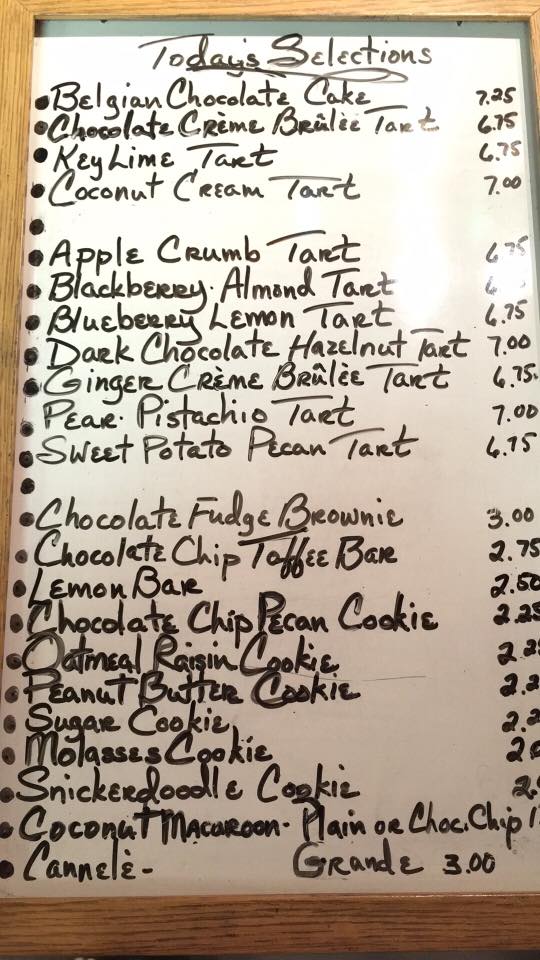 Today's Selections
Belgian Chocolate Cake 7.25
Chocolate Crème Brûlèe Tart 6.75
Key Lime Tart 6.75
Coconut Cream Tart 7.00
Apple Crumb Tart 6.75
Blackberry. Almond Tart
Blueberry Lemon Tart 6.75
Dark Chocolate Hazelnut Tart 7.00
Ginger Crème Brûlèe Tart 6.75
Pear. Pistachio Tart 7.00
Sweet Potato Pecan Tart 6.75
Chocolate Fudge Brownie 3.00
Chocolate Chip Toffee Bar 2.75
Lemon Bar 2.50
Chocolate Chip Pecan Cookie 2.25
Oatmeal Raisin Cookie
Peanut Butter Cookie
Sugar Cookie
Molasses Cookie
Snickerdoodle Cookie
Coconut Macaroon - Plain or Choc. Chip
Cannelè - Grande 3.00